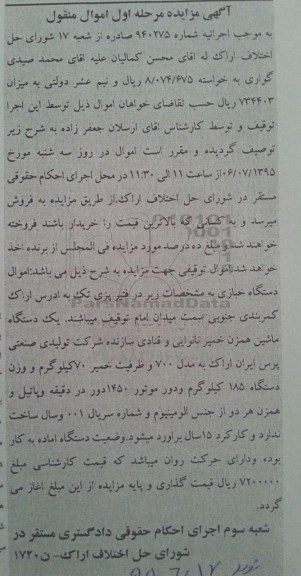 آگهی مزایده مرحله اول اموال منقول
به موجب اجرائیه شماره ۹۴۰۲۷۵ صادره از شعبه ۱۷ شورای حل
اختلاف اراک له اقای محسن کمالیان علیه اقای محمد صیدی
گواری به خواسته ۸/۰۷۴/۶۷۵ ریال و نیم عشر دولتی به میزان
۷۳۴۴۰۳ ریال حسب تقاضای خواهان اموال ذیل توسط این اجرا
توقیف و توسط کارشناس اقای ارسلان جعفر زاده به شرح زیر
توصیف گردیده و مقرر است اموال در روز سه شنبه مورخ
۰۶/۰۷/۱۳۹۵از ساعت ۱۱ الی ۱۱:۳۰ در محل اجرای احکام حقوقی
مستقر در شورای حل اختلاف اراک،از طریق مزایده به فروش
میرسد و به کسانی که بالاترین قیمت را خریدار باشند فروخته
خواهند شد و مبلغ ده درصد مورد مزایده فی المجلس از برنده اخذ
خواهد شد:اموال توقیفی جهت مزایده به شرح ذیل می باشد:اموال
دستگاه خبازی به مشخصات زیر در فنر پزی تک به ادرس اراک
کمربندی جنوبی سمت میدان امام توقیف میباشند. یک دستگاه
ماشین همزن خمیر نانوایی و قنادی سازنده شرکت تولیدی صنعتی
پرس ایران اراک به مدل ۷۰۰ و ظرفیت خمیر ۷۰کیلوگرم و وزن
دستگاه ۱۸۵ کیلوگرم ودور موتور ۱۴۵۰دور در دقیقه وپاتیل و
همزن هر دو از جنس الومینیوم و شماره سریال ۰۰۱ وسال ساخت
ندارد و کارکرد ۱۵سال براورد میشود.وضعیت دستگاه اماده به کار
بوده ودارای حرکت روان میباشد که قیمت کارشناسی مبلغ
۷۲۰۰۰۰۰ ریال قیمت گذاری و پایه مزایده از این مبلغ اغاز می
گردد.
شعبه سوم اجرای احکام حقوقی دادگستری مستقر در
شورای حل اختلاف اراک- ن۱۷۲۰
ParsNamadData